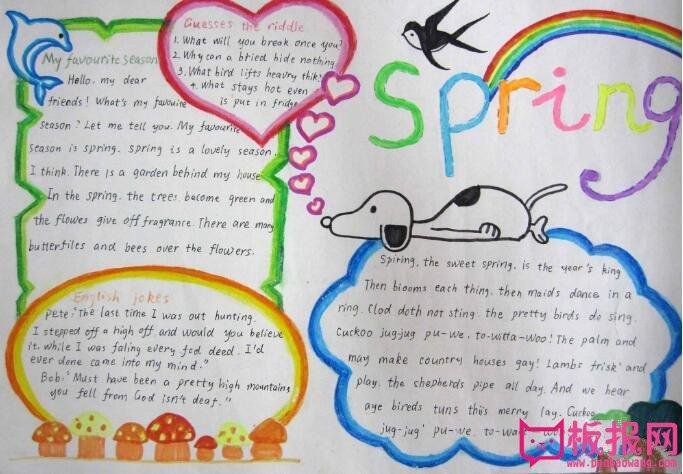 My favourite season
Hello, my dear
friends! What's my favouite
season? Let me tell you. My favourite
season is spring. Spring is a lovely season.
I think. There is a garden behind my house
In the spring, the trees become green and
the flowes give off fragrance. There are many
butterfiles and bees over the flowers.
Guesses the riddle
1. What will you break once you?
2. Why con a bried hide nothing
3. What bird lifts heavry thik!
4. What stays hot even
is put in fridge
Spring
English jokes
Pete: "The last time I was out hunting.
I stepped off a high off and would you believe
it, while I was faling every fod deed. I'd
ever done came into my mind."
Bob: "Must have been a pretty high mountains
you fell from God isn't deaf."
Spiring, the sweet spring, is the year's king
Then biooms each thing, then maids dance in a
ring. Clod doth not sting. the pretty birds do sing.
Cuckoo jug-jug pu-we, to-witta-woo! The palm and
may make country houses gay! Lambs frisk' and
play. the shepherds pipe all day. And we hear
aye bireds tuns this merry lay. Cuckoo
jug-jug' pu-we. to-wa
板报网
www.banbaowang.com